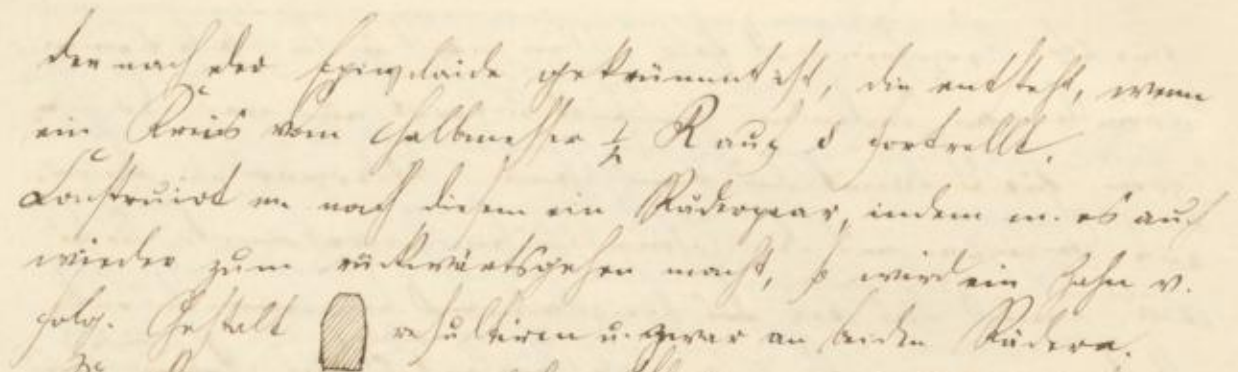 der nach der Epicycloide gekrümmt ist, die entsteht, wenn
ein Kreis vom Halbmesser ½ R auf fortrollt.
Construirt m. nach diesem ein Räderpaar, indem m. es auch
wieder zum rückwärtsgehen macht, so wird ein Zahn v.
folg. Gestalt resultiren u. zwar an beiden Rädern.